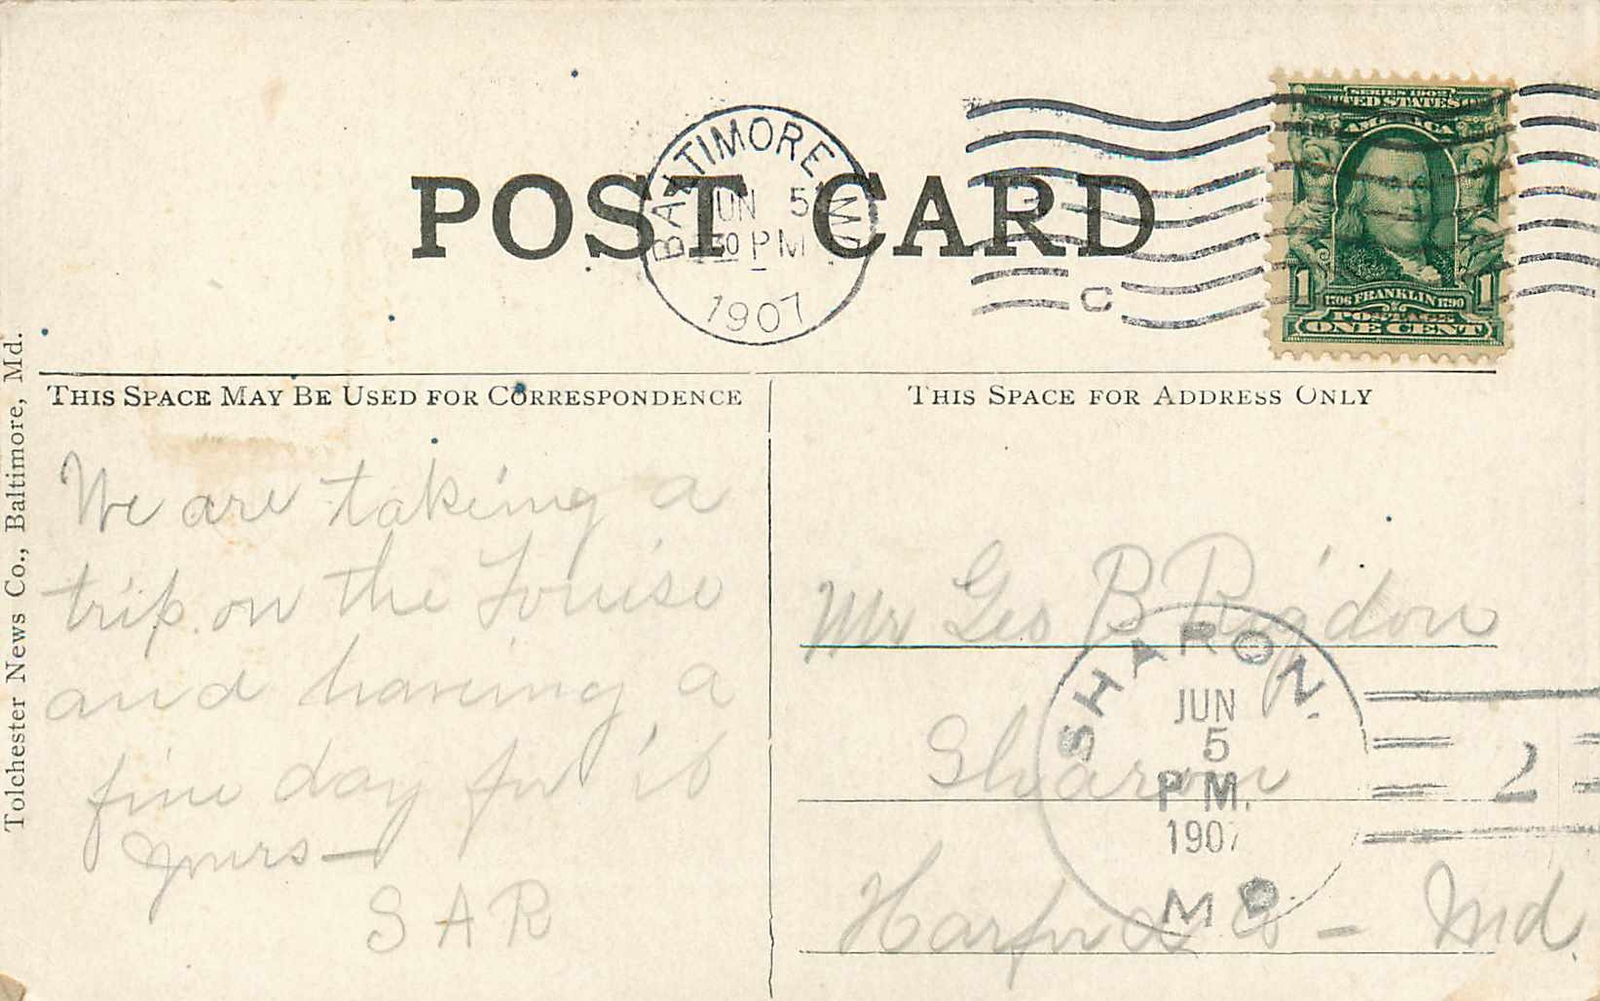 POST CARD
BALTIMORE, MD.
JUN 5
30 PM
1907
C
SERIES 1902
UNITED STATES OF
AMERICA
1 1706 FRANKLIN 1790 1
POSTAGE
ONE CENT
THIS SPACE MAY BE USED FOR CORRESPONDENCE
THIS SPACE FOR ADDRESS ONLY
Tolchester News Co., Baltimore, Md.
We are taking a
trip on the Louise
and having a
fine day for it
Yours —
S A R
Mr Geo B Rigdon
Sharon
Harford Co — Md.
SHARON.
JUN
5
PM.
1907
MD.
2